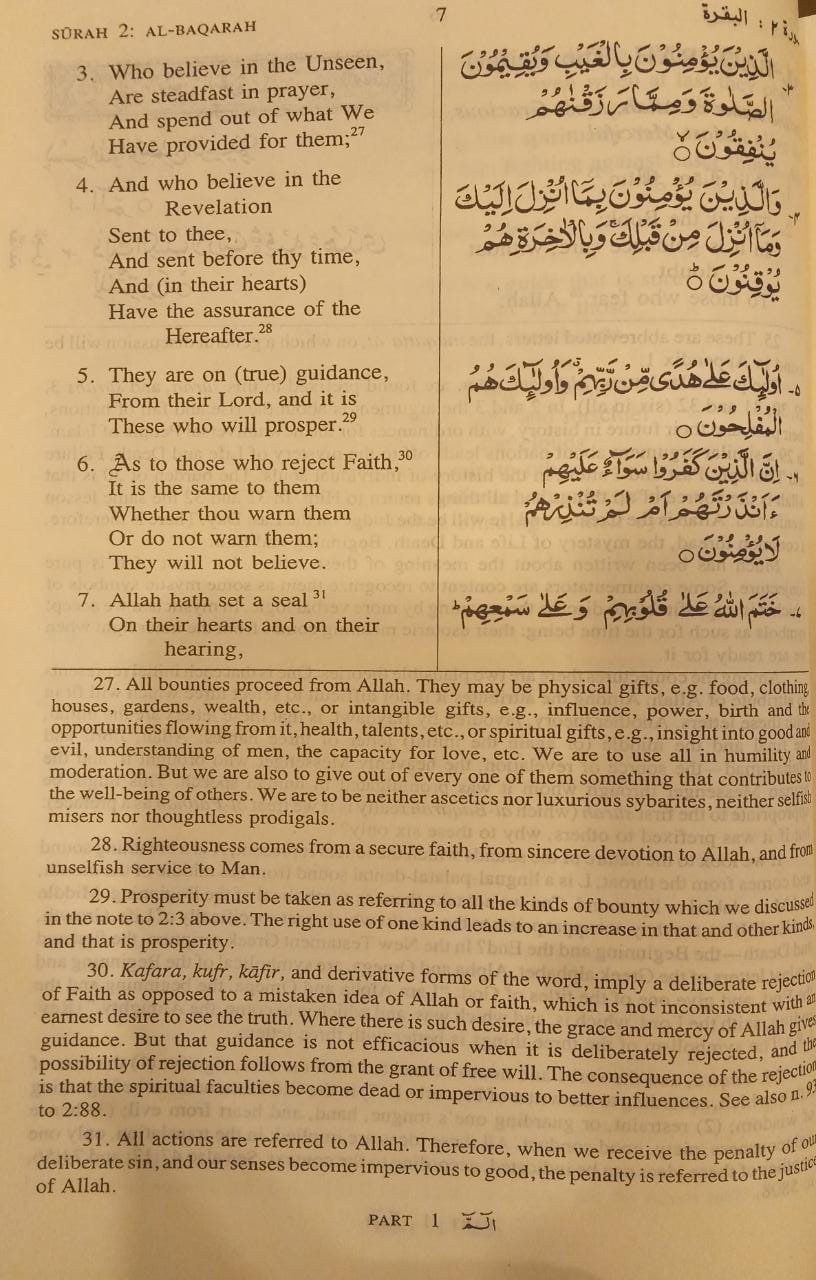 SŪRAH 2: AL-BAQARAH
7
البقرة
3. Who believe in the Unseen,
Are steadfast in prayer,
And spend out of what We
Have provided for them;27
4. And who believe in the
Revelation
Sent to thee,
And sent before thy time,
And (in their hearts)
Have the assurance of the
Hereafter.28
5. They are on (true) guidance,
From their Lord, and it is
These who will prosper.29
6. As to those who reject Faith,30
It is the same to them
Whether thou warn them
Or do not warn them;
They will not believe.
7. Allah hath set a seal 31
On their hearts and on their
hearing,
٣- الَّذِيْنَ يُؤْمِنُوْنَ بِالْغَيْبِ وَيُقِيْمُوْنَ
الصَّلٰوةَ وَمِمَّا رَزَقْنٰهُمْ
يُنْفِقُوْنَ ○
٤- وَالَّذِيْنَ يُؤْمِنُوْنَ بِمَآ اُنْزِلَ اِلَيْكَ
وَمَآ اُنْزِلَ مِنْ قَبْلِكَ وَبِالْاٰخِرَةِ هُمْ
يُوْقِنُوْنَ ○
٥- اُولٰٓئِكَ عَلٰى هُدًى مِّنْ رَّبِّهِمْ وَاُولٰٓئِكَ هُمُ
الْمُفْلِحُوْنَ ○
٦- اِنَّ الَّذِيْنَ كَفَرُوْا سَوَآءٌ عَلَيْهِمْ
ءَاَنْذَرْتَهُمْ اَمْ لَمْ تُنْذِرْهُمْ
لَا يُؤْمِنُوْنَ ○
٧- خَتَمَ اللّٰهُ عَلٰى قُلُوْبِهِمْ وَعَلٰى سَمْعِهِمْ ط
27. All bounties proceed from Allah. They may be physical gifts, e.g. food, clothing,
houses, gardens, wealth, etc., or intangible gifts, e.g., influence, power, birth and the
opportunities flowing from it, health, talents, etc., or spiritual gifts, e.g., insight into good and
evil, understanding of men, the capacity for love, etc. We are to use all in humility and
moderation. But we are also to give out of every one of them something that contributes to
the well-being of others. We are to be neither ascetics nor luxurious sybarites, neither selfish
misers nor thoughtless prodigals.
28. Righteousness comes from a secure faith, from sincere devotion to Allah, and from
unselfish service to Man.
29. Prosperity must be taken as referring to all the kinds of bounty which we discussed
in the note to 2:3 above. The right use of one kind leads to an increase in that and other kinds,
and that is prosperity.
30. Kafara, kufr, kāfir, and derivative forms of the word, imply a deliberate rejection
of Faith as opposed to a mistaken idea of Allah or faith, which is not inconsistent with an
earnest desire to see the truth. Where there is such desire, the grace and mercy of Allah gives
guidance. But that guidance is not efficacious when it is deliberately rejected, and the
possibility of rejection follows from the grant of free will. The consequence of the rejection
is that the spiritual faculties become dead or impervious to better influences. See also n. 93
to 2:88.
31. All actions are referred to Allah. Therefore, when we receive the penalty of our
deliberate sin, and our senses become impervious to good, the penalty is referred to the justice
of Allah.
PART 1 الٓمّٓ